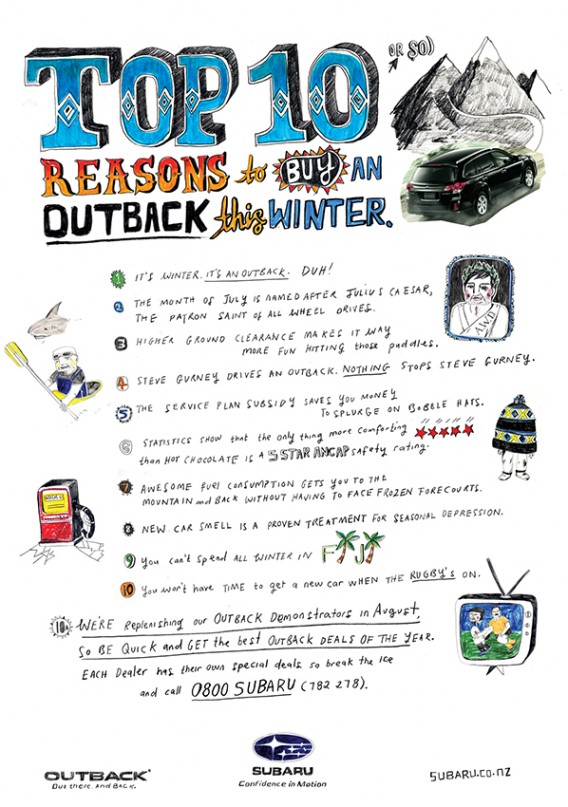 TOP 10
OR SO)
REASONS to BUY AN
OUTBACK this WINTER.
1 IT'S WINTER. IT'S AN OUTBACK. DUH!
2 THE MONTH OF JULY IS NAMED AFTER JULIUS CAESAR,
THE PATRON SAINT OF ALL WHEEL DRIVES.
AWD
3 HIGHER GROUND CLEARANCE MAKES IT WAY
MORE FUN HITTING those puddles.
4 STEVE GURNEY DRIVES AN OUTBACK. NOTHING STOPS STEVE GURNEY.
5 THE SERVICE PLAN SUBSIDY SAVES YOU MONEY
TO SPLURGE ON BOBBLE HATS.
6 STATISTICS SHOW that the only thing more comforting
than HOT CHOCOLATE IS A 5 STAR ANCAP safety rating.
7 AWESOME FUEL CONSUMPTION GETS YOU TO THE
MOUNTAIN and BACK WITHOUT HAVING TO FACE FROZEN FORECOURTS.
8 NEW CAR SMELL IS A PROVEN TREATMENT FOR SEASONAL DEPRESSION.
9 You can't spend ALL WINTER IN FIJI
10 You won't have TIME to get a new car WHEN THE RUGBY'S ON.
10½ WE'RE Replenishing our OUTBACK Demonstrators in August,
So BE Quick and GET the best OUTBACK DEALS OF THE YEAR.
EACH Dealer has their own special deals so break the ice
and call 0800 SUBARU (782 278).
OUTBACK
Out there. And Back.
SUBARU
Confidence in Motion
SUBARU.CO.NZ